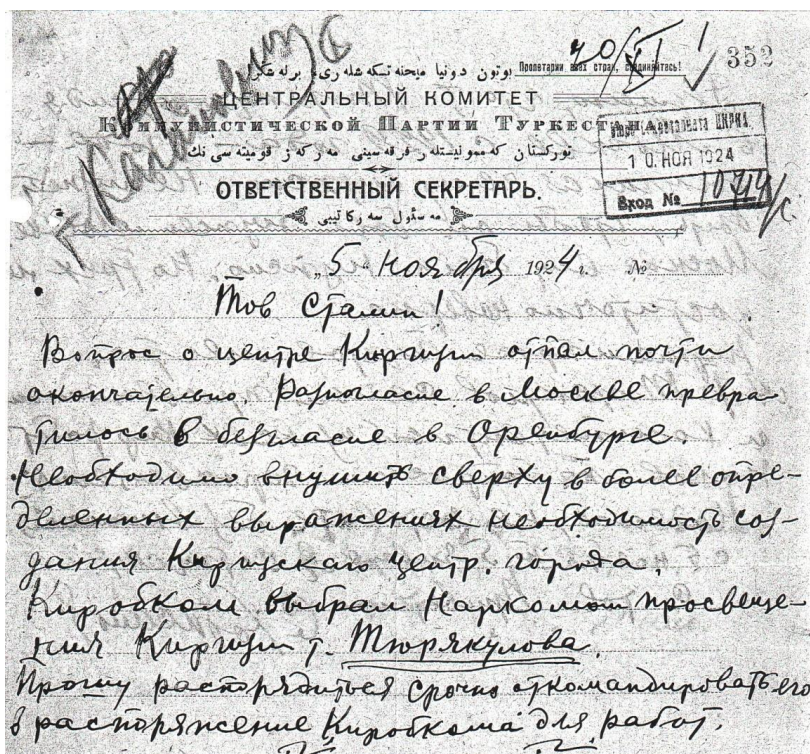 20/XI
352
Пролетарии всех стран, соединяйтесь!
ЦЕНТРАЛЬНЫЙ КОМИТЕТ
Коммунистической Партии Туркестана
ОТВЕТСТВЕННЫЙ СЕКРЕТАРЬ.
10. НОЯ 1924
Вход №
„5" ноября 1924 г. №
Тов Сталин!
Вопрос о центре Киргизии отпал почти
окончательно. Разногласие в Москве превра-
тилось в безгласие в Оренбурге.
Необходимо внушить сверху в более опре-
деленных выражениях необходимость соз-
дания Киргизскаго центр. города.
Киробком выбрал Наркомом просвеще-
ния Киргизии т. Тюрякулова.
Прошу распорядиться срочно откомандировать его
в распоряжение Киробкома для работ.